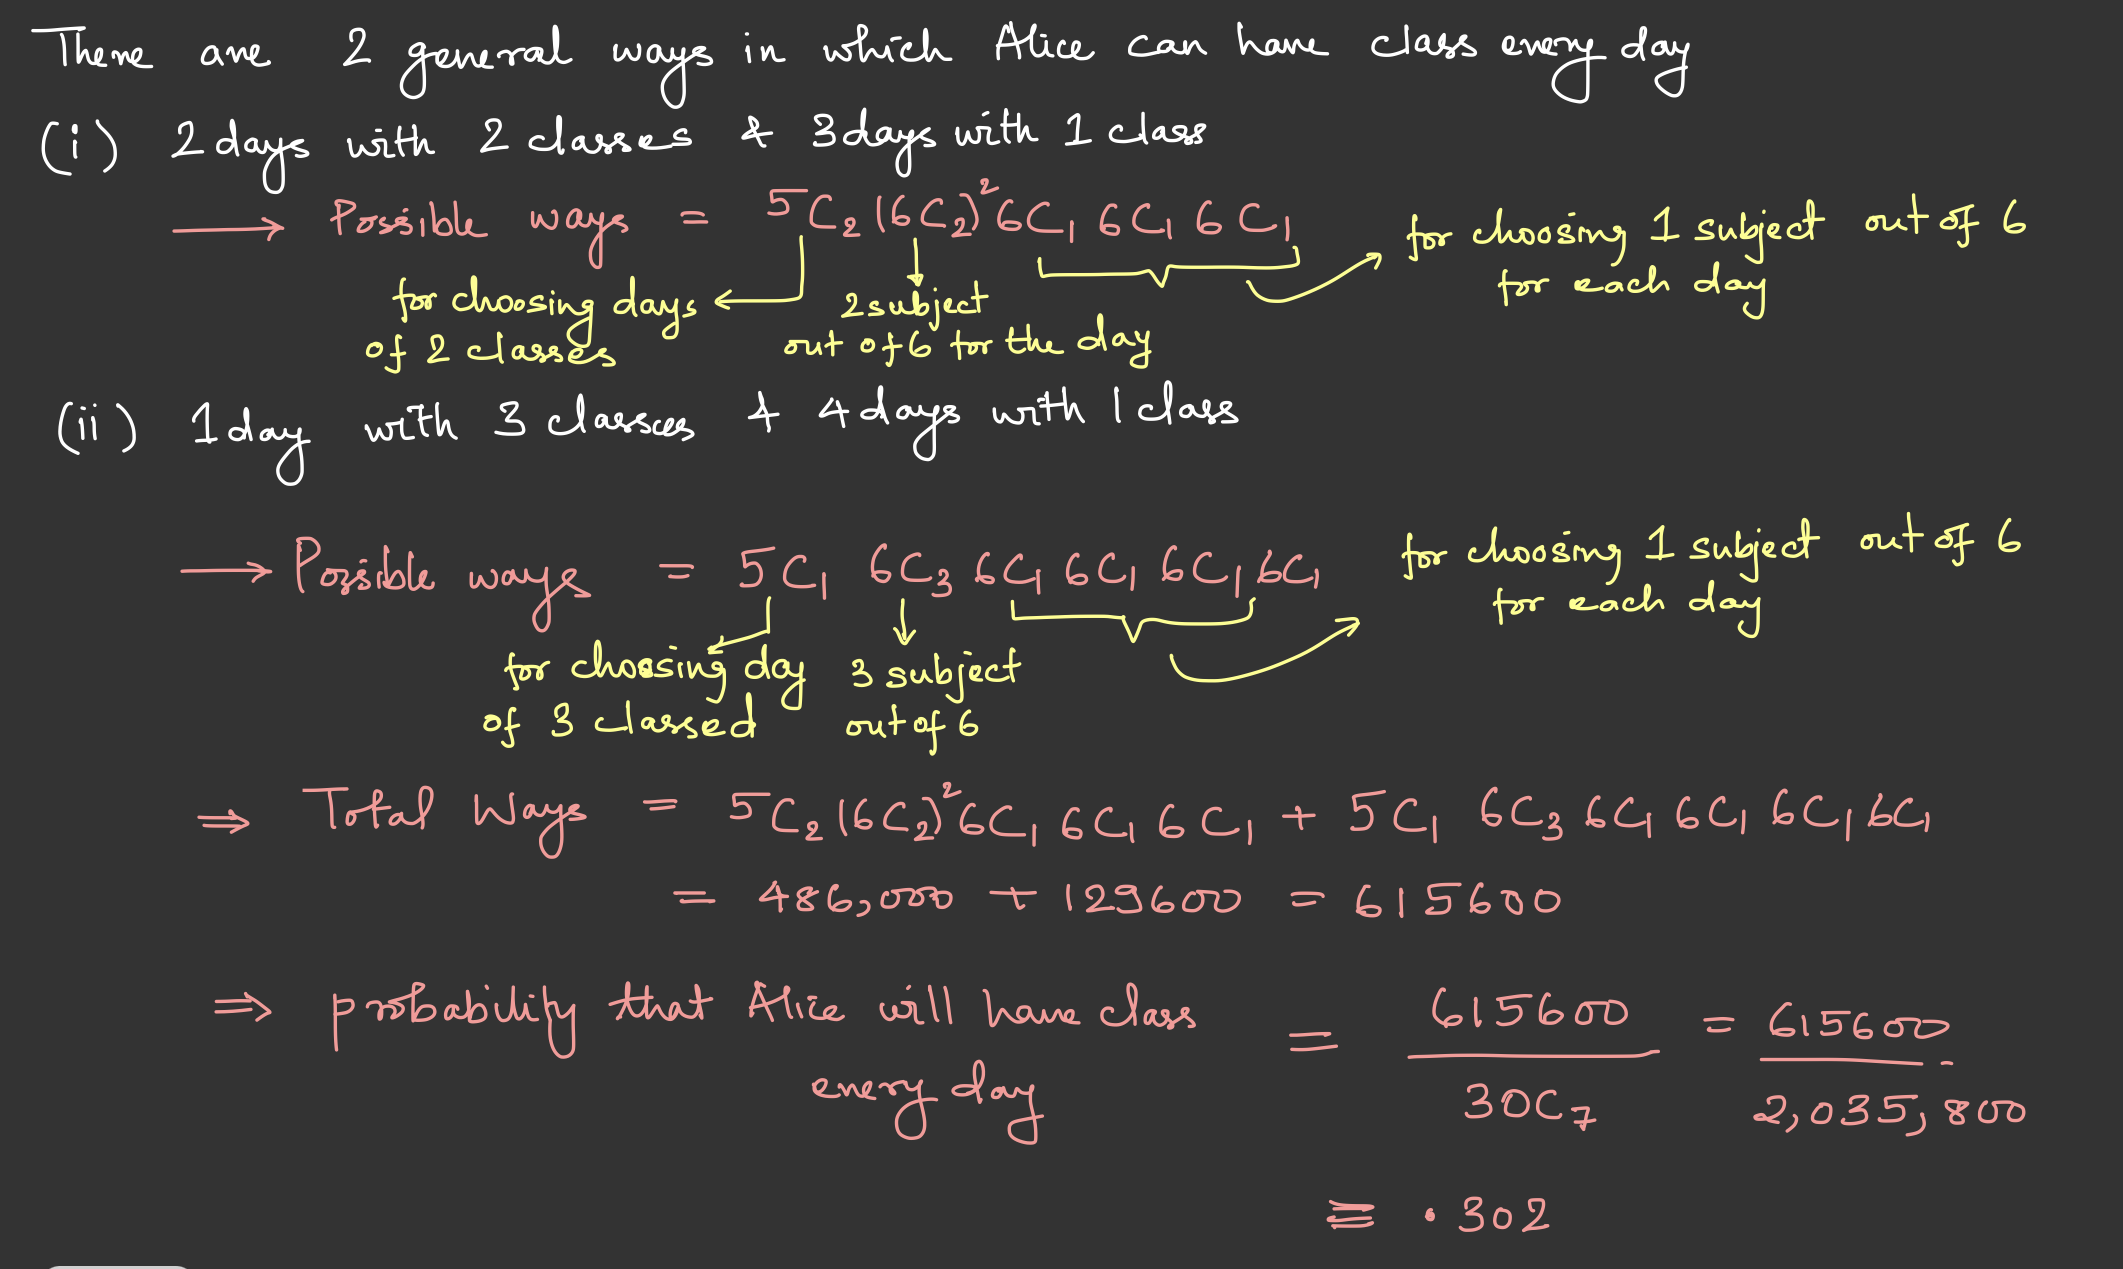 There are 2 general ways in which Alice can have class every day
(i) 2 days with 2 classes & 3 days with 1 class
⟶ Possible ways = 5C₂ (6C₂)² 6C₁ 6C₁ 6C₁
for choosing 1 subject out of 6
for each day
for choosing days
of 2 classes
2 subject
out of 6 for the day
(ii) 1 day with 3 classes & 4 days with 1 class
⟶ Possible ways = 5C₁ 6C₃ 6C₁ 6C₁ 6C₁ 6C₁
for choosing 1 subject out of 6
for each day
for choosing day
of 3 classed
3 subject
out of 6
⇒ Total Ways = 5C₂ (6C₂)² 6C₁ 6C₁ 6C₁ + 5C₁ 6C₃ 6C₁ 6C₁ 6C₁ 6C₁
= 486,000 + 129600 = 615600
⇒ probability that Alice will have class
every day
= 615600 / 30C₇ = 615600 / 2,035,800
= .302